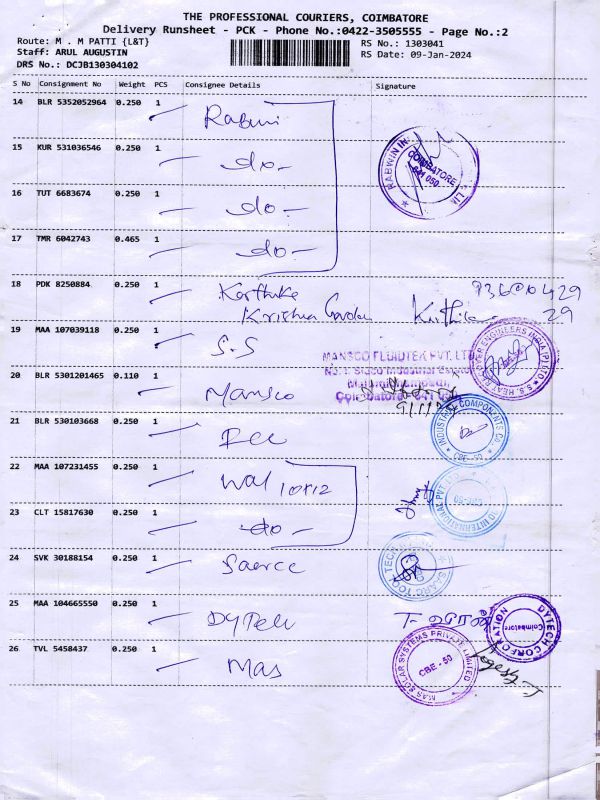 THE PROFESSIONAL COURIERS, COIMBATORE
Delivery Runsheet - PCK - Phone No.:0422-3505555 - Page No.:2
Route: M . M PATTI {L&T}
Staff: ARUL AUGUSTIN
DRS No.: DCJB130304102
RS No.: 1303041
RS Date: 09-Jan-2024
S No Consignment No Weight PCS Consignee Details Signature
14 BLR 5352052964 0.250 1 Rabwin
15 KUR 531036546 0.250 1 do-
RABWIN IN
COIMBATORE
641 050
16 TUT 6683674 0.250 1 do-
17 TMR 6042743 0.465 1 do-
18 PDK 8250884 0.250 1 Karthike
Krishna
29
19 MAA 107039118 0.250 1 S.S
MANSCO FLUIDTEK PVT. LTD
20 BLR 5301201465 0.110 1 Mansco
21 BLR 530103668 0.250 1
INDUSTRIAL COMPONENTS CO.
CBE-50
22 MAA 107231455 0.250 1
23 CLT 15817630 0.250 1 do-
24 SVK 30188154 0.250 1
25 MAA 104665550 0.250 1 DyTech
DYTECH CORPORATION
Coimbatore
26 TVL 5458437 0.250 1 Mas
MAS SOLAR SYSTEMS PRIVATE LIMITED
CBE - 50